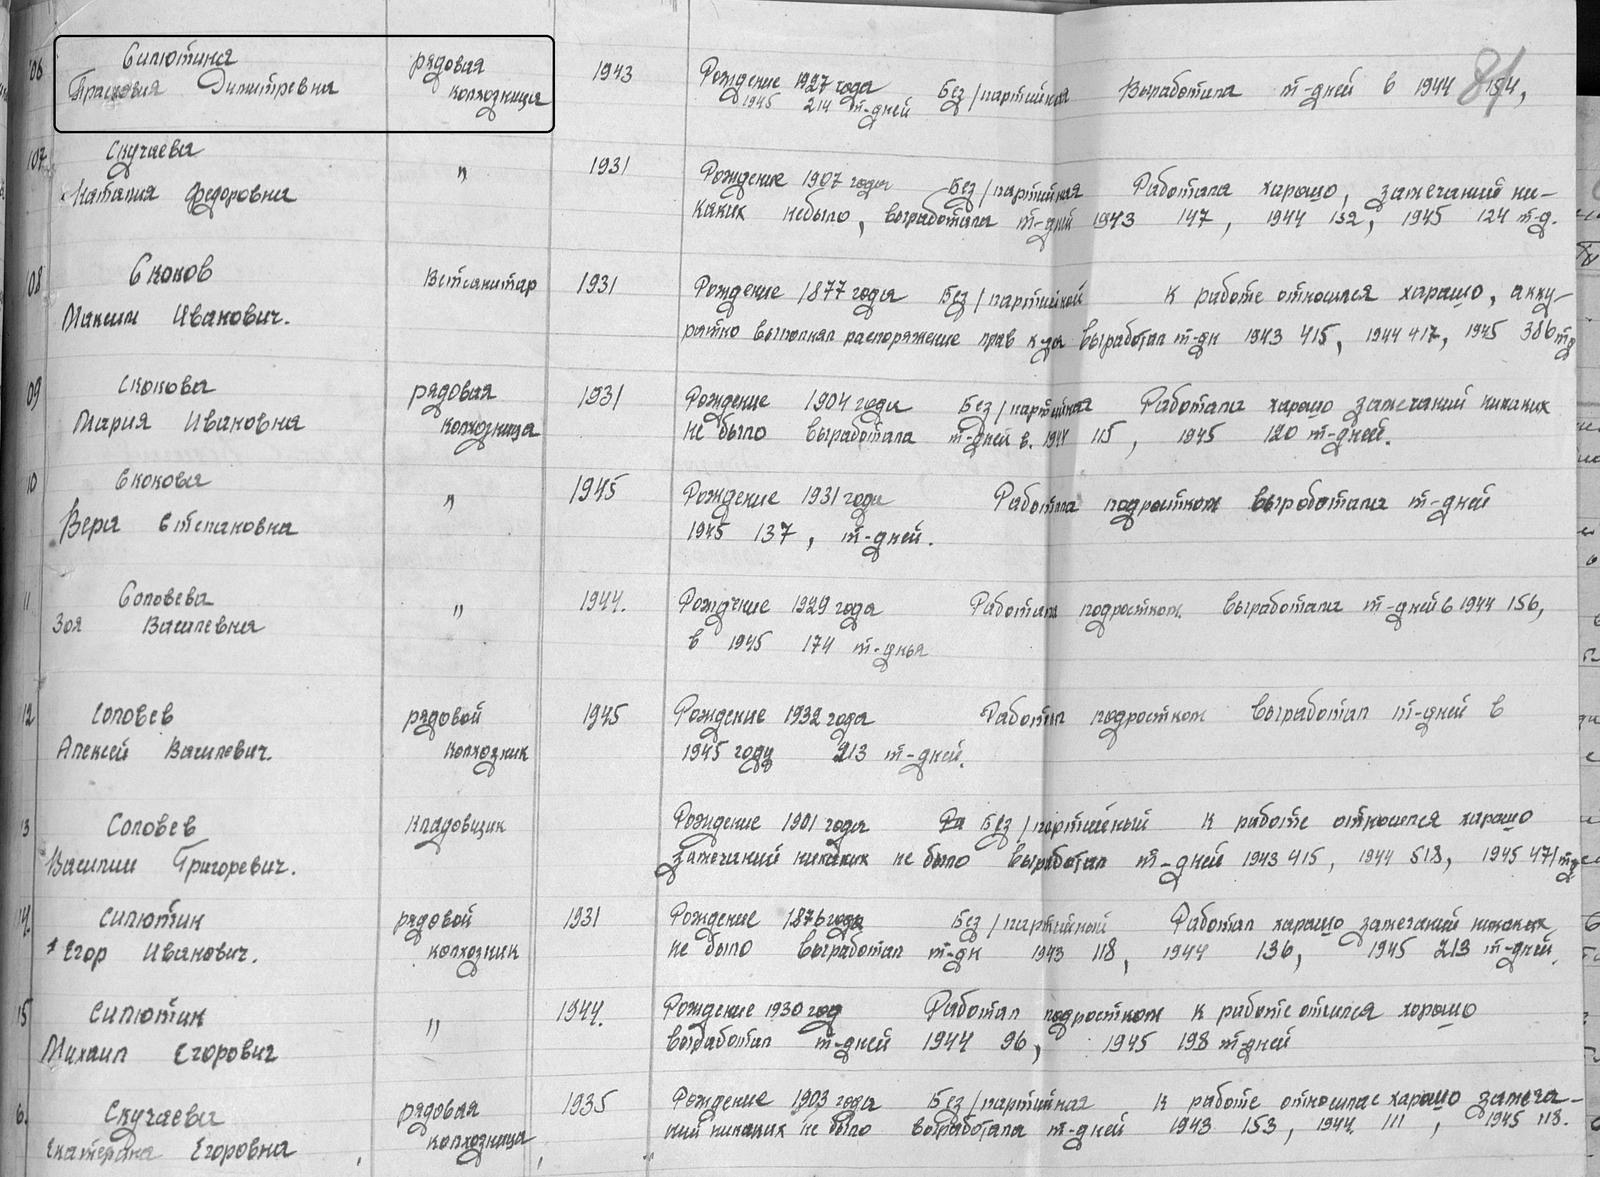 106 Силютина рядовая 1943 Рождение 1927 года Без/партийная Выработала т-дней в 1944 154,
Прасковия Димитревна колхозница 1945 214 т-дней
81
107 Скучаева " 1931 Рождение 1907 года Без/партийная Работала харашо, замечаний ни-
Наталия Федоровна каких небыло, выработала т-дней 1943 147, 1944 132, 1945 124 т-д.
108 Скоков Ветсанитар 1931 Рождение 1877 года Без/партийной К работе относился харашо, акку-
Максим Иванович. ратно выполнял распоряжение прав к-за выработал т-дн 1943 415, 1944 417, 1945 386 тд
09 Скокова рядовая 1931 Рождение 1904 года Без/партийная Работала харашо замечаний никаких
Мария Ивановна колхозница не было выработала т-дней в. 1944 115, 1945 120 т-дней.
10 Скокова " 1945 Рождение 1931 года Работала подростком выработала т-дней
Вера Степановна 1945 137, т-дней.
11 Соловева " 1944. Рождение 1929 года Работала подростком выработала т-дней в 1944 156,
Зоя Василевна в 1945 174 т-дня
12 Соловев рядовой 1945 Рождение 1932 года Работал подростком выработал т-дней в
Алексей Василевич. колхозник 1945 году 213 т-дней.
13 Соловев кладовщик Рождение 1901 года Без/партийный К работе относился харашо
Василий Григоревич. замечаний никаких не было выработал т-дней 1943 415, 1944 518, 1945 471 тд
14. Силютин рядовой 1931 Рождение 1876 года Без/партийный Работал харашо замечаний никаких
Егор Иванович. колхозник не было выработал т-дн 1943 118, 1944 136, 1945 213 т-дней.
15 Силютин " 1944. Рождение 1930 год Работал подростком к работе отнсился харашо
Михаил Егорович выработал т-дней 1944 96, 1945 198 т-дней
6. Скучаева рядовая 1935 Рождение 1903 года Без/партийная К работе относилас харашо замеча-
Екатерина Егоровна колхозница, ний никаких не было выработала т-дней 1943 153, 1944. 111, 1945 118.